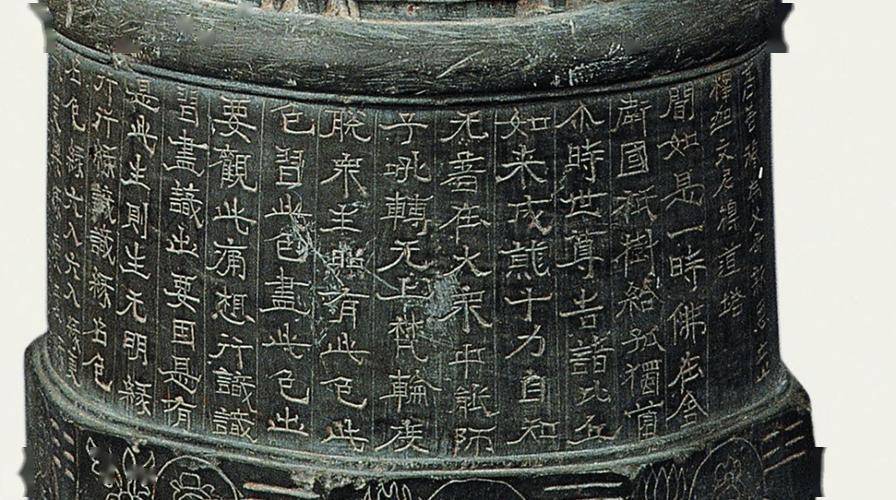 高善穆為父母報恩立
釋迦文尼得道塔
聞如是一時佛在舍
衛國祇樹給孤獨園
尒時世尊告諸比丘
如來成熊十力自知
无著在大衆中能師
子吼轉无上梵輪度
脫衆生有此色此
色習此色盡此色出
要觀此痛想行識識
習盡識出要因是有
是此生則生无明緣
行行緣識識緣名色
名色緣六入六入緣更